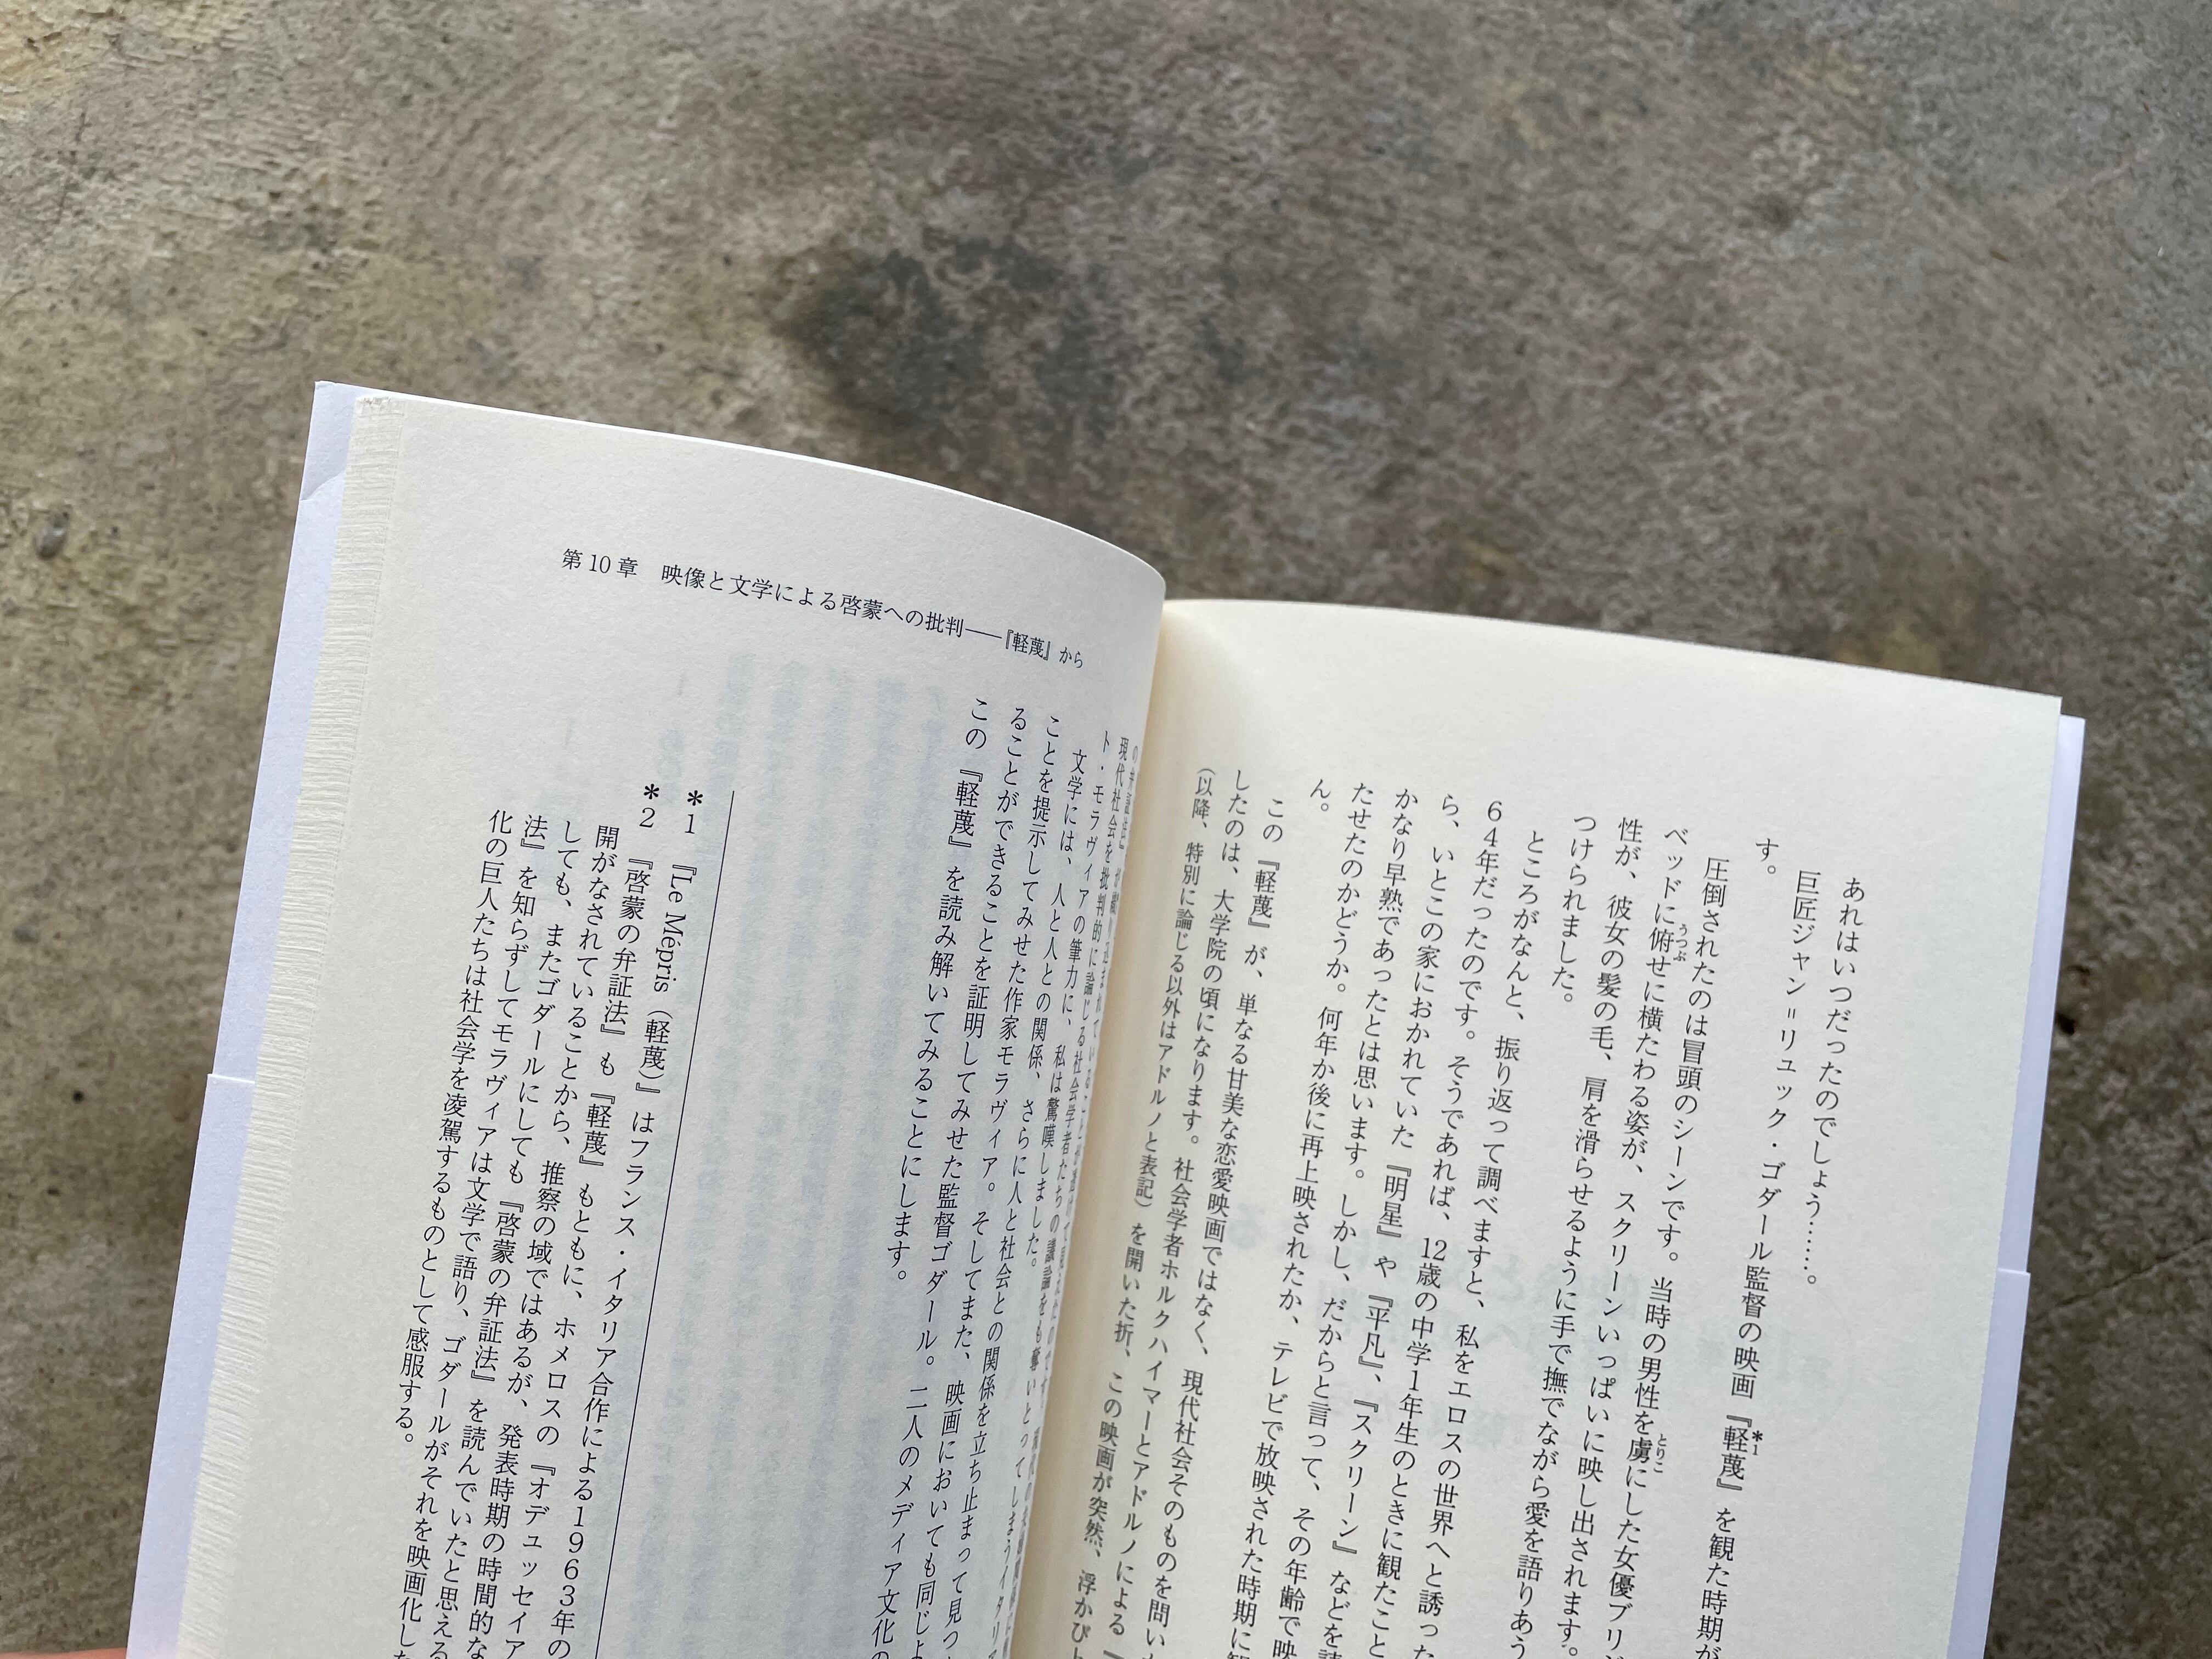 あれはいつだったのでしょう……。
巨匠ジャン＝リュック・ゴダール監督の映画『軽蔑』*1を観た時期が
す。
圧倒されたのは冒頭のシーンです。当時の男性を虜にした女優ブリ
ベッドに俯せに横たわる姿が、スクリーンいっぱいに映し出されます。
性が、彼女の髪の毛、肩を滑らせるように手で撫でながら愛を語りあう
つけられました。
ところがなんと、振り返って調べますと、私をエロスの世界へと誘った
64年だったのです。そうであれば、12歳の中学1年生のときに観たこと
ら、いとこの家におかれていた『明星』や『平凡』、『スクリーン』などを
かなり早熟であったとは思います。しかし、だからと言って、その年齢で映
たせたのかどうか。何年か後に再上映されたか、テレビで放映された時期に
ん。
この『軽蔑』が、単なる甘美な恋愛映画ではなく、現代社会そのものを問い
したのは、大学院の頃になります。社会学者ホルクハイマーとアドルノによる『
（以降、特別に論じる以外はアドルノと表記）を開いた折、この映画が突然、浮かび
第10章 映像と文学による啓蒙への批判――『軽蔑』から
の弁証法』が
現代社会を批判的に論じる社会学者たちの議論をも奪いとってしまうイタリア
ト・モラヴィアの筆力に、私は驚嘆しました。
文学には、人と人との関係、さらに人と社会との関係を立ち止まって見つ
ことを提示してみせた作家モラヴィア。そしてまた、映画においても同じよ
ることができることを証明してみせた監督ゴダール。二人のメディア文化の
この『軽蔑』を読み解いてみることにします。
*1 『Le Mépris（軽蔑）』はフランス・イタリア合作による1963年の
*2 『啓蒙の弁証法』も『軽蔑』もともに、ホメロスの『オデュッセイア
開がなされていることから、推察の域ではあるが、発表時期の時間的な
しても、またゴダールにしても『啓蒙の弁証法』を読んでいたと思える
法』を知らずしてモラヴィアは文学で語り、ゴダールがそれを映画化した
化の巨人たちは社会学を凌駕するものとして感服する。